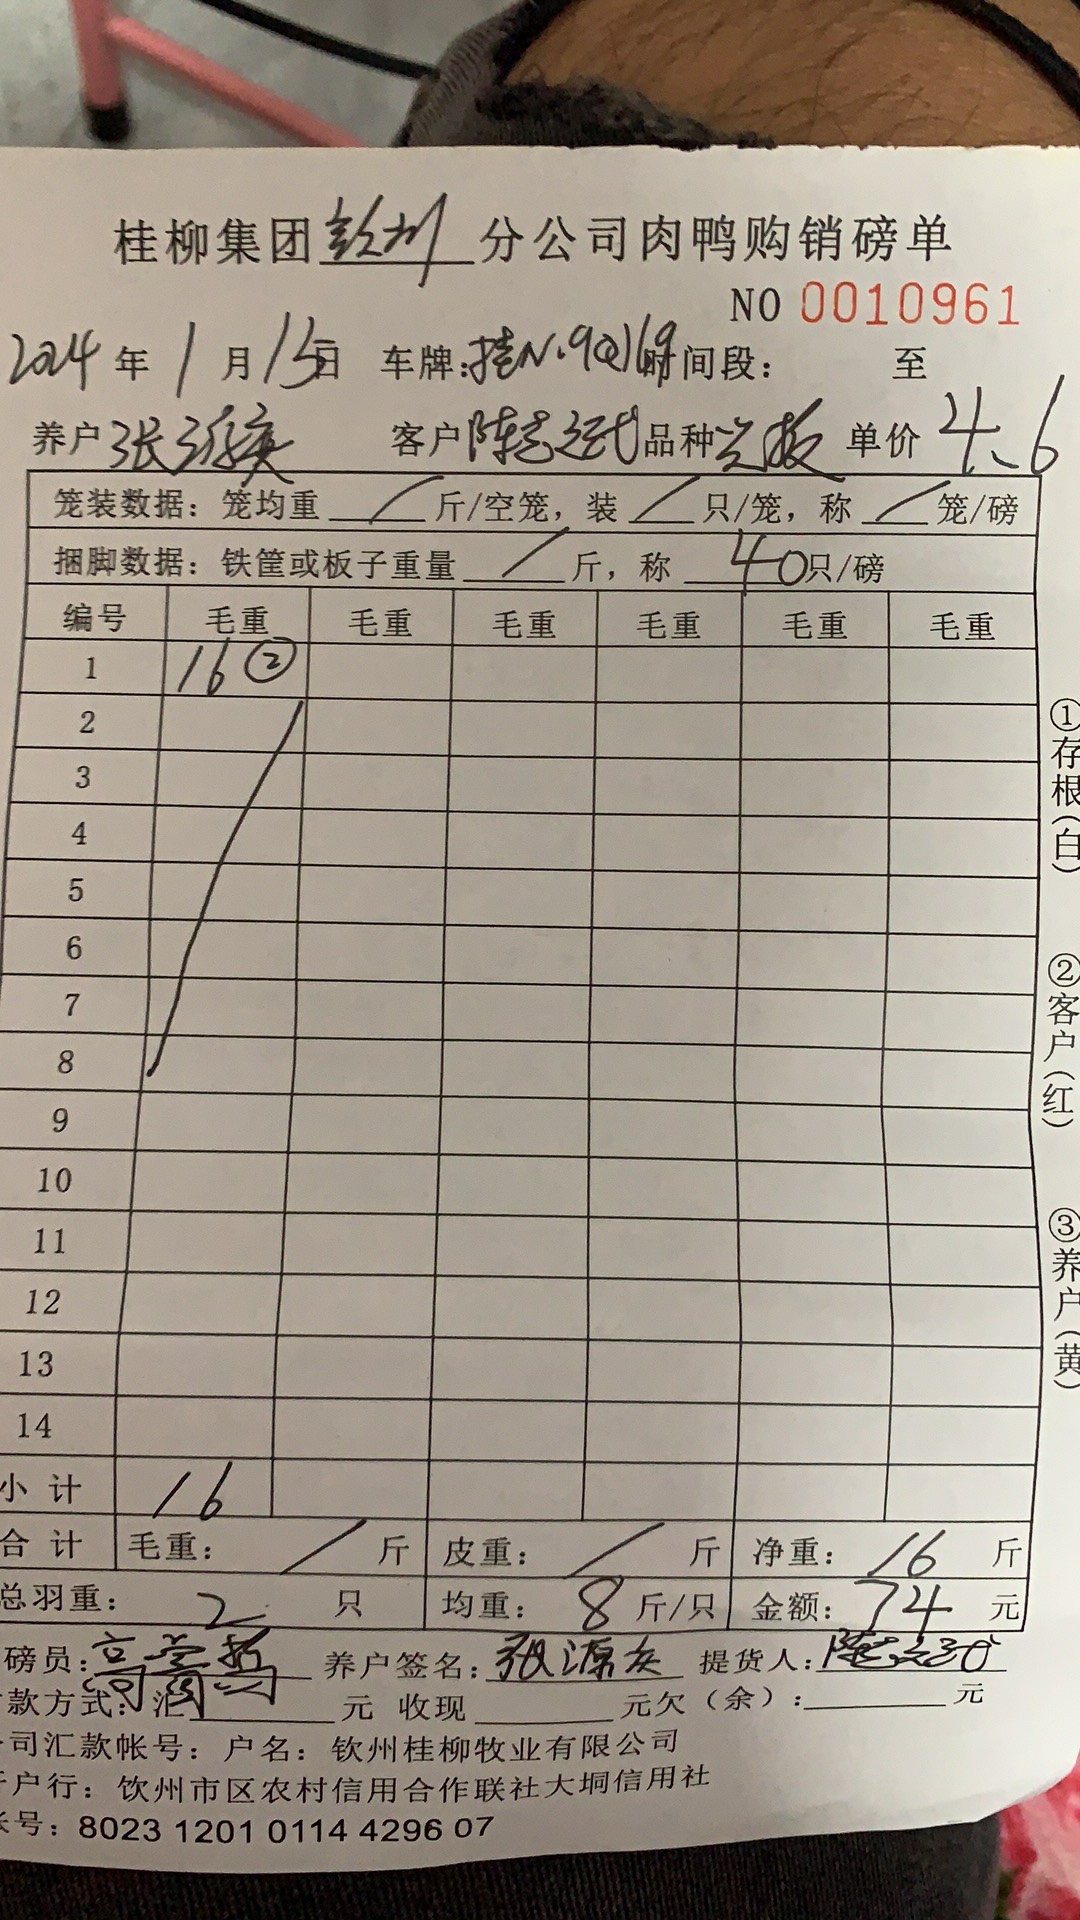 桂柳集团 分公司肉鸭购销磅单
NO 0010961
2024年1月15日 车牌: 时间段: 至
养户 张 客户 陈志 品种 单价 4.6
笼装数据：笼均重 / 斤/空笼，装 / 只/笼，称 / 笼/磅
捆脚数据：铁筐或板子重量 / 斤，称 40只/磅
编号 毛重 毛重 毛重 毛重 毛重 毛重
1 16②
2
3
4
5
6
7
8
9
10
11
12
13
14
小计 16
合计 毛重： / 斤 皮重： / 斤 净重： 16 斤
总羽重： 2 只 均重： 8 斤/只 金额: 74 元
磅员: 养户签名: 张源 提货人: 陈
款方式: 汇 元 收现 元欠（余）: 元
司汇款帐号：户名：钦州桂柳牧业有限公司
户行：钦州市区农村信用合作联社大垌信用社
号：8023 1201 0114 4296 07
①存根(白)
②客户(红)
③养户(黄)